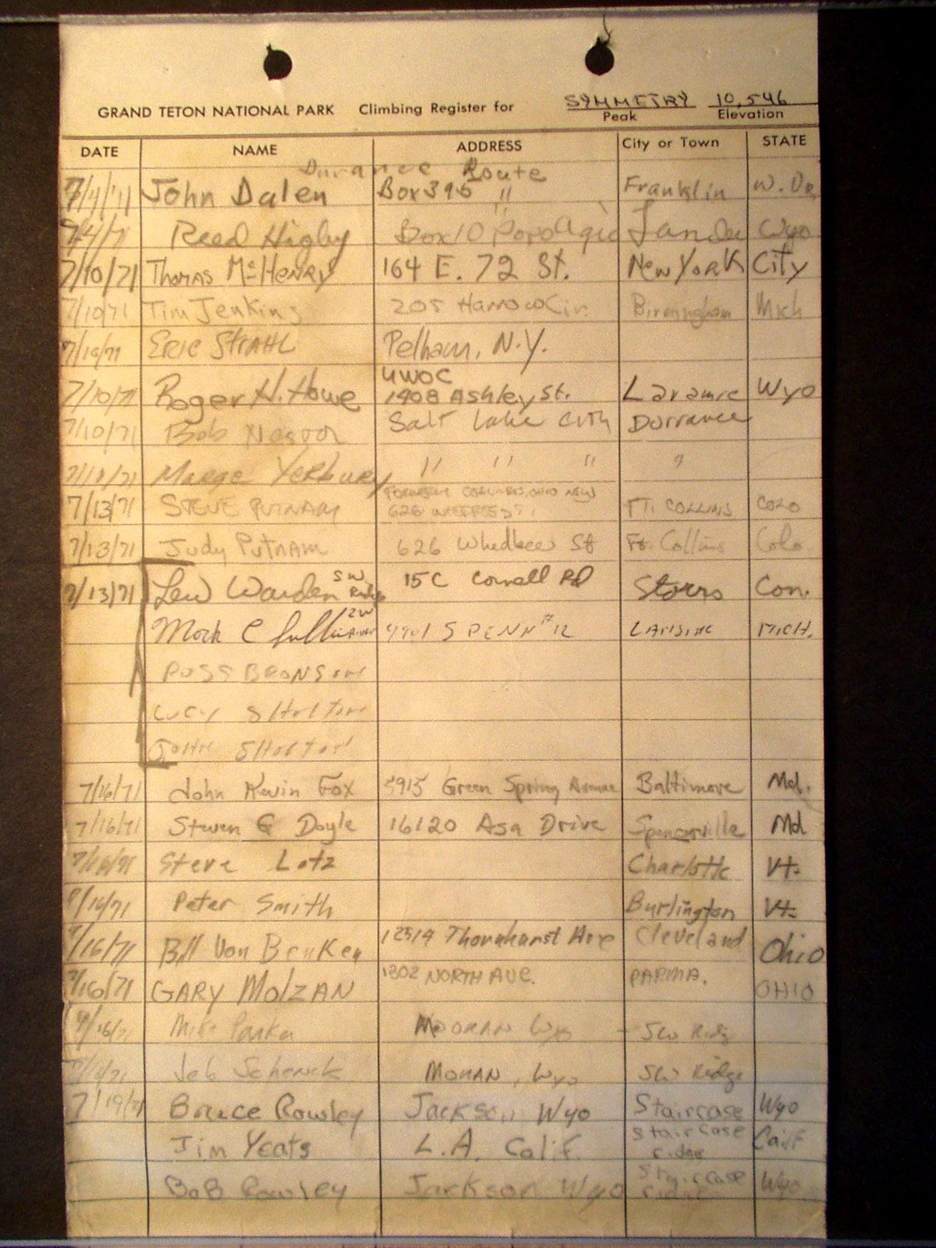 GRAND TETON NATIONAL PARK Climbing Register for SYMMETRY 10,546
Peak Elevation
DATE NAME ADDRESS City or Town STATE
Durance Route
7/4/71 John Dalen Box 395 " Franklin W. Va.
7/4/71 Reed Higby Box 10 Lander Wyo
7/10/71 Thomas McHenry 164 E. 72 St. New York City
7/10/71 Tim Jenkins 205 Birmingham Mich
7/10/71 Eric Strahl Pelham, N.Y.
UWOC
7/10/71 Roger H. Howe 1908 Ashley St. Laramie Wyo
7/10/71 Bob Salt Lake City Durrance
7/10/71 Marge Yerbury " " " "
7/13/71 STEVE PUTNAM 626 FT. COLLINS COLO
7/13/71 Judy Putnam 626 Whedbee St Ft. Collins Colo.
7/13/71 Lew Warden SW Ridge 15C Cornell Rd Storrs Con.
4901 S PENN #12 MICH.
RUSS BRONSON
LUCY Sholton
John Sholton
7/16/71 John Kevin Fox 5915 Green Spring Avenue Baltimore Md.
7/16/71 Steven G Doyle 16120 Asa Drive Spencerville Md
7/16/71 Steve Lotz Charlotte Vt.
7/16/71 Peter Smith Burlington Vt.
7/16/71 Bill Von Benken 12519 Thornhurst Ave Cleveland Ohio
7/16/71 GARY MOLZAN 1302 NORTH AVE. PARMA. OHIO
7/16/71 Mike Parker MORAN Wyo - SW Ridge
Jeb Schenck MORAN, Wyo SW Ridge
7/19/71 Bruce Rowley Jackson Wyo Staircase Wyo
Jim Yeats L.A. Calif. Staircase ridge Calif
Bob Rowley Jackson Wyo Staircase ridge Wyo